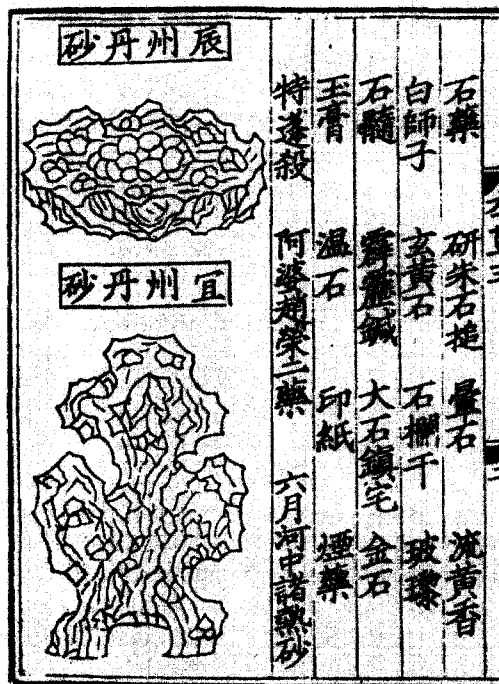 石藥 研朱石搥 暈石 流黃香
白師子 玄黃石 石欄干 玻瓈
石髓 霹靂鍼 大石鎮宅 金石
玉膏 溫石 印紙 煙藥
特蓬殺 阿婆趙榮二藥 六月河中諸熱砂
辰州丹砂
宜州丹砂